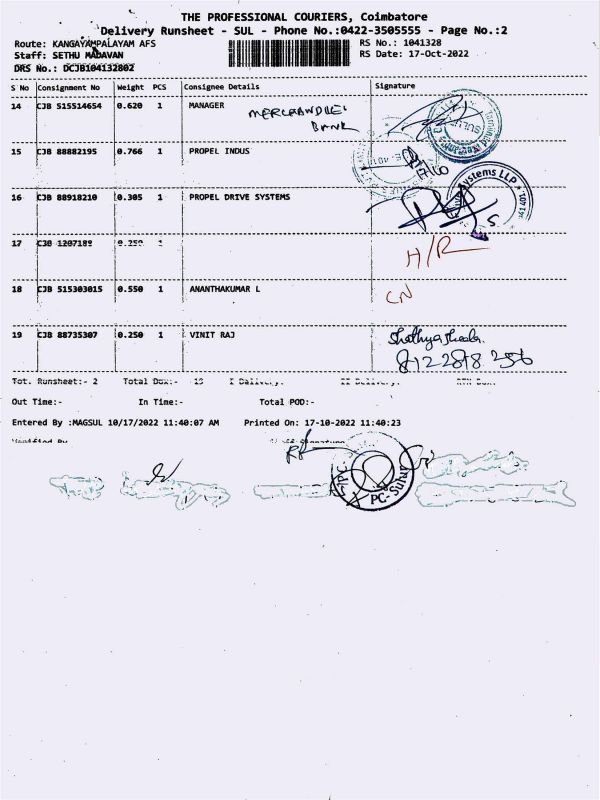 THE PROFESSIONAL COURIERS, Coimbatore
Delivery Runsheet - SUL - Phone No.:0422-3505555 - Page No.:2
Route: KANGAYAMPALAYAM AFS
RS No.: 1041328
Staff: SETHU MADAVAN
RS Date: 17-Oct-2022
DRS No.: DCJB104132802
S No Consignment No Weight PCS Consignee Details Signature
14 CJB 515514654 0.620 1 MANAGER
BANK
15 CJB 88882195 0.766 1 PROPEL INDUS
16 CJB 88918210 0.305 1 PROPEL DRIVE SYSTEMS
Systems LLP
17
H/R
18 CJB 515303015 0.550 1 ANANTHAKUMAR L
CN
19 CJB 88735307 0.250 1 VINIT RAJ
Tot. Runsheet:- 2 Total
Out Time:- In Time:- Total POD:-
Entered By :MAGSUL 10/17/2022 11:40:07 AM Printed On: 17-10-2022 11:40:23
PC- Sulur